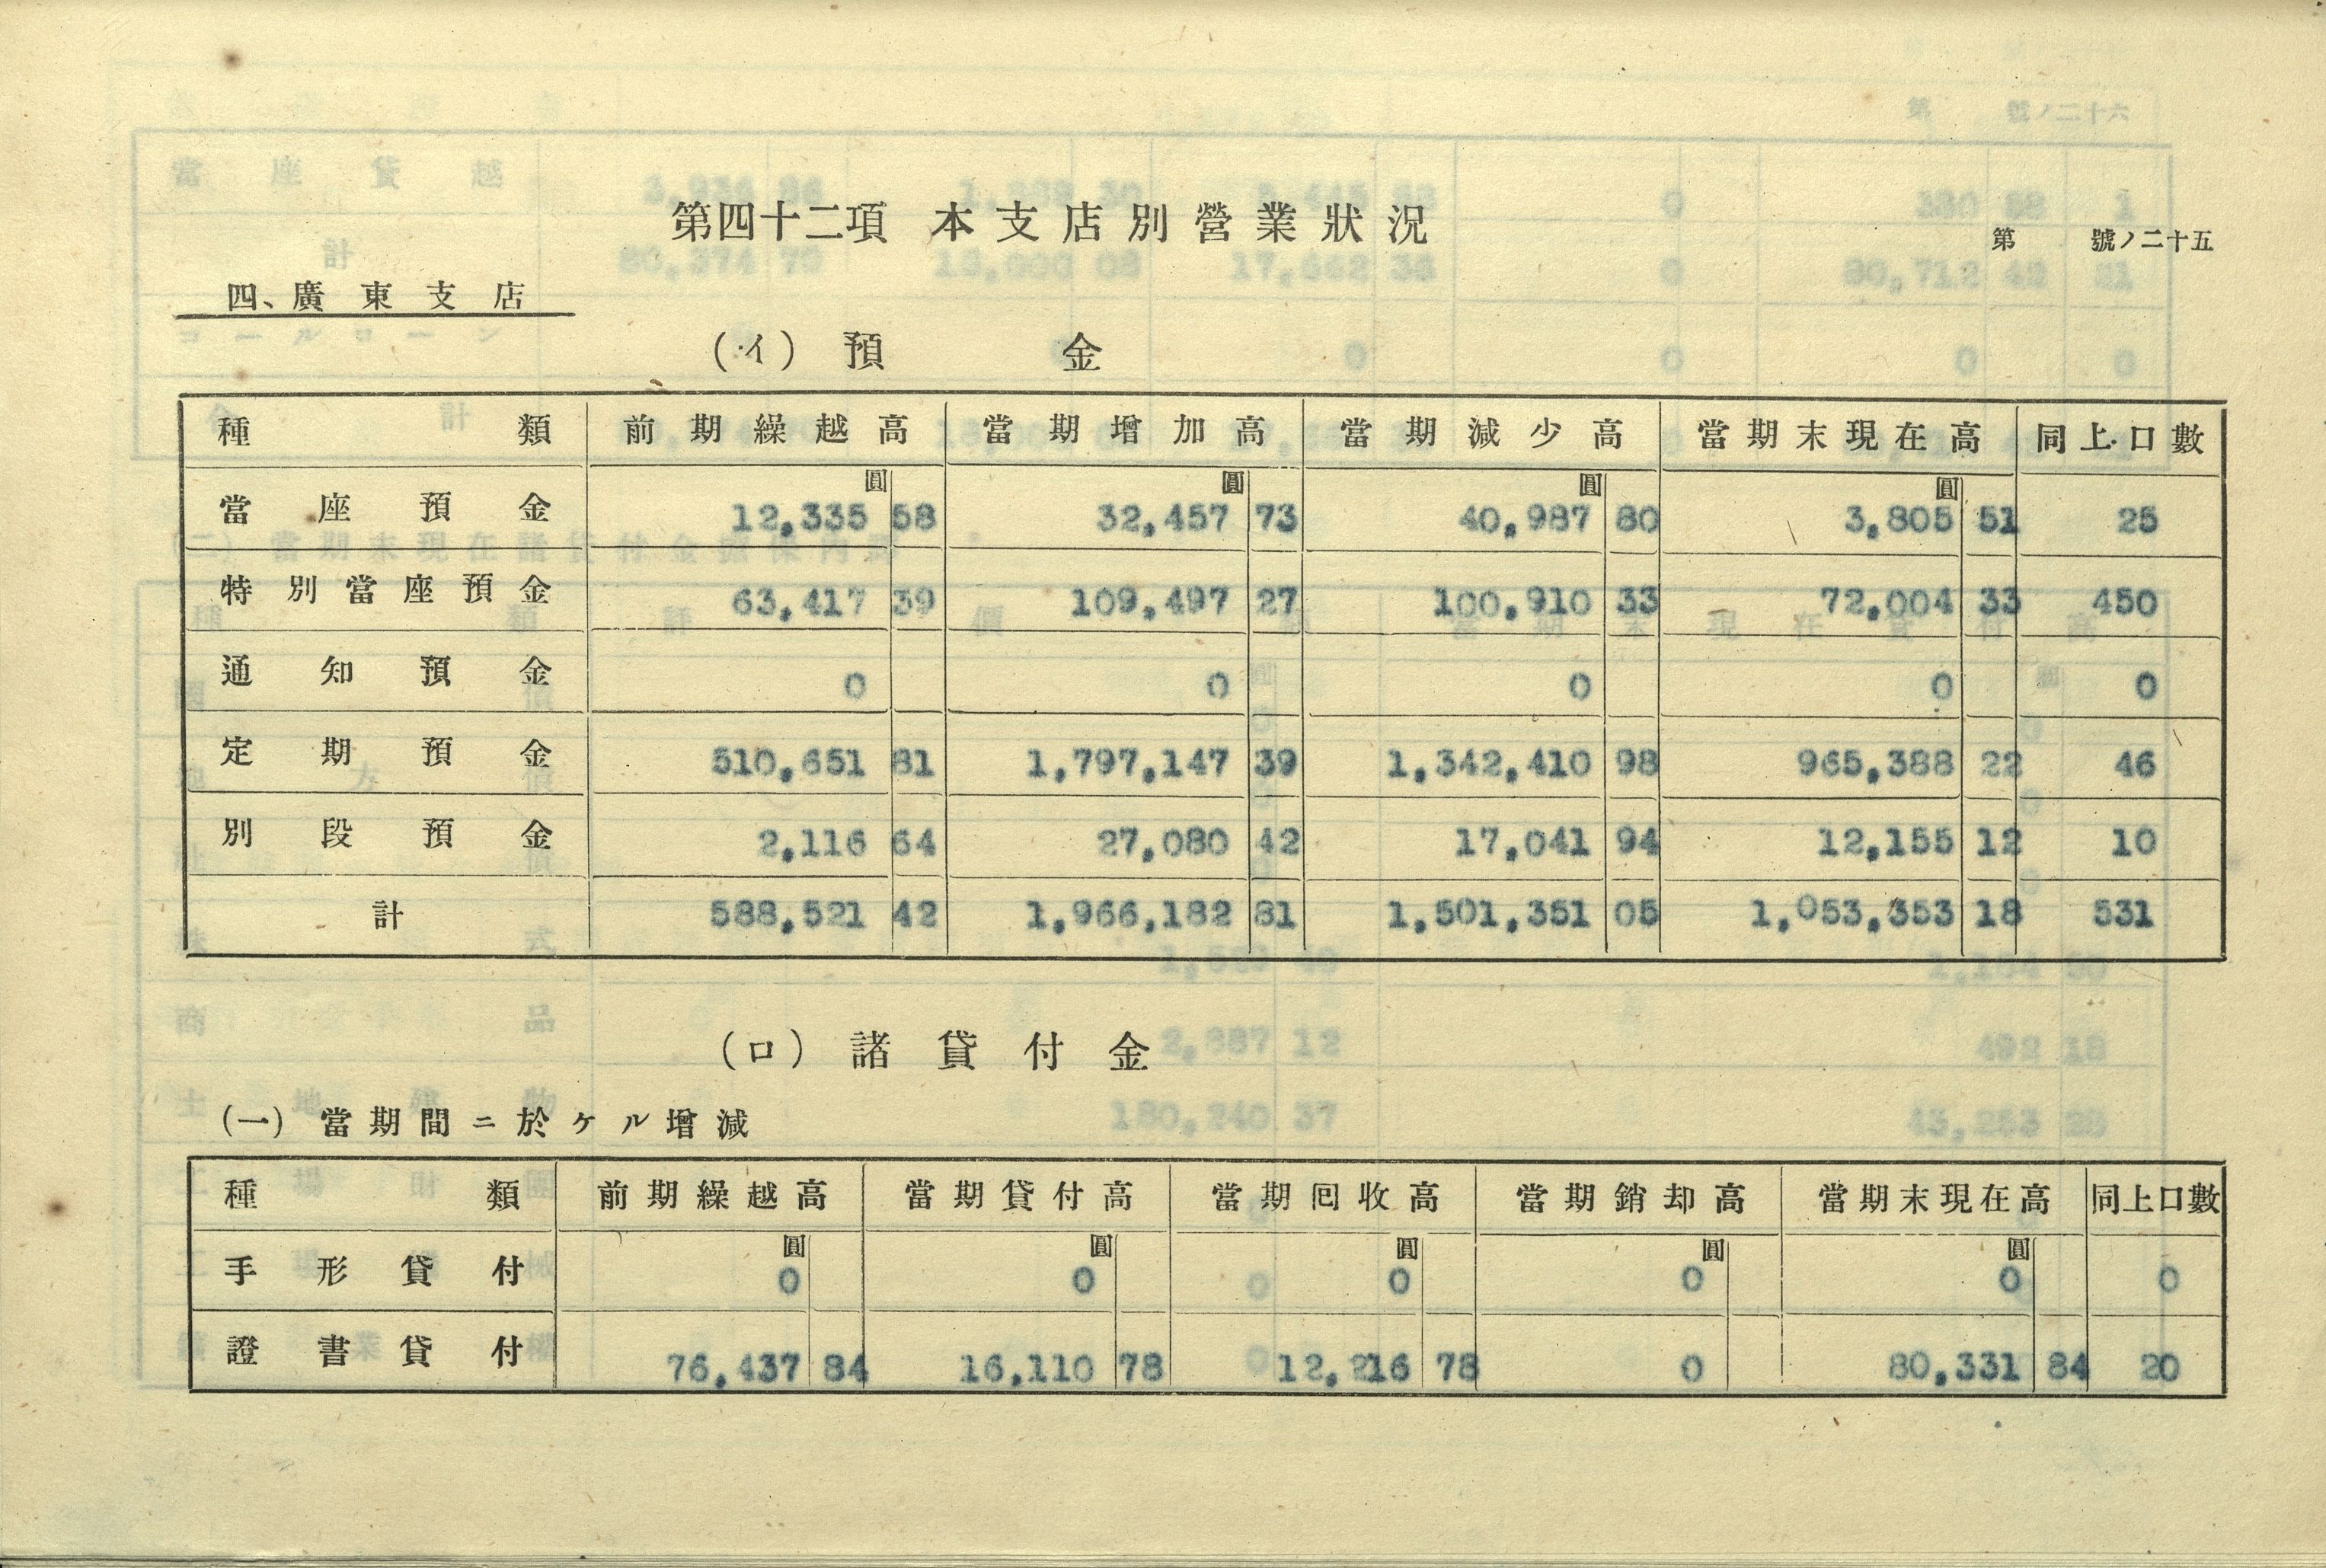 第四十二項 本支店別營業狀況
第 號ノ二十五
四、廣東支店
(イ) 預金
種類 前期繰越高 當期增加高 當期減少高 當期末現在高 同上口數
圓 圓 圓 圓
當座預金 12,335 58 32,457 73 40,987 80 3,805 51 25
特別當座預金 63,417 39 109,497 27 100,910 33 72,004 33 450
通知預金 0 0 0 0 0
定期預金 510,651 81 1,797,147 39 1,342,410 98 965,388 22 46
別段預金 2,116 64 27,080 42 17,041 94 12,155 12 10
計 588,521 42 1,966,182 81 1,501,351 05 1,053,353 18 531
(ロ) 諸貸付金
(一) 當期間ニ於ケル增減
種類 前期繰越高 當期貸付高 當期囘收高 當期銷却高 當期末現在高 同上口數
圓 圓 圓 圓 圓
手形貸付 0 0 0 0 0 0
證書貸付 76,437 84 16,110 78 12,216 78 0 80,331 84 20